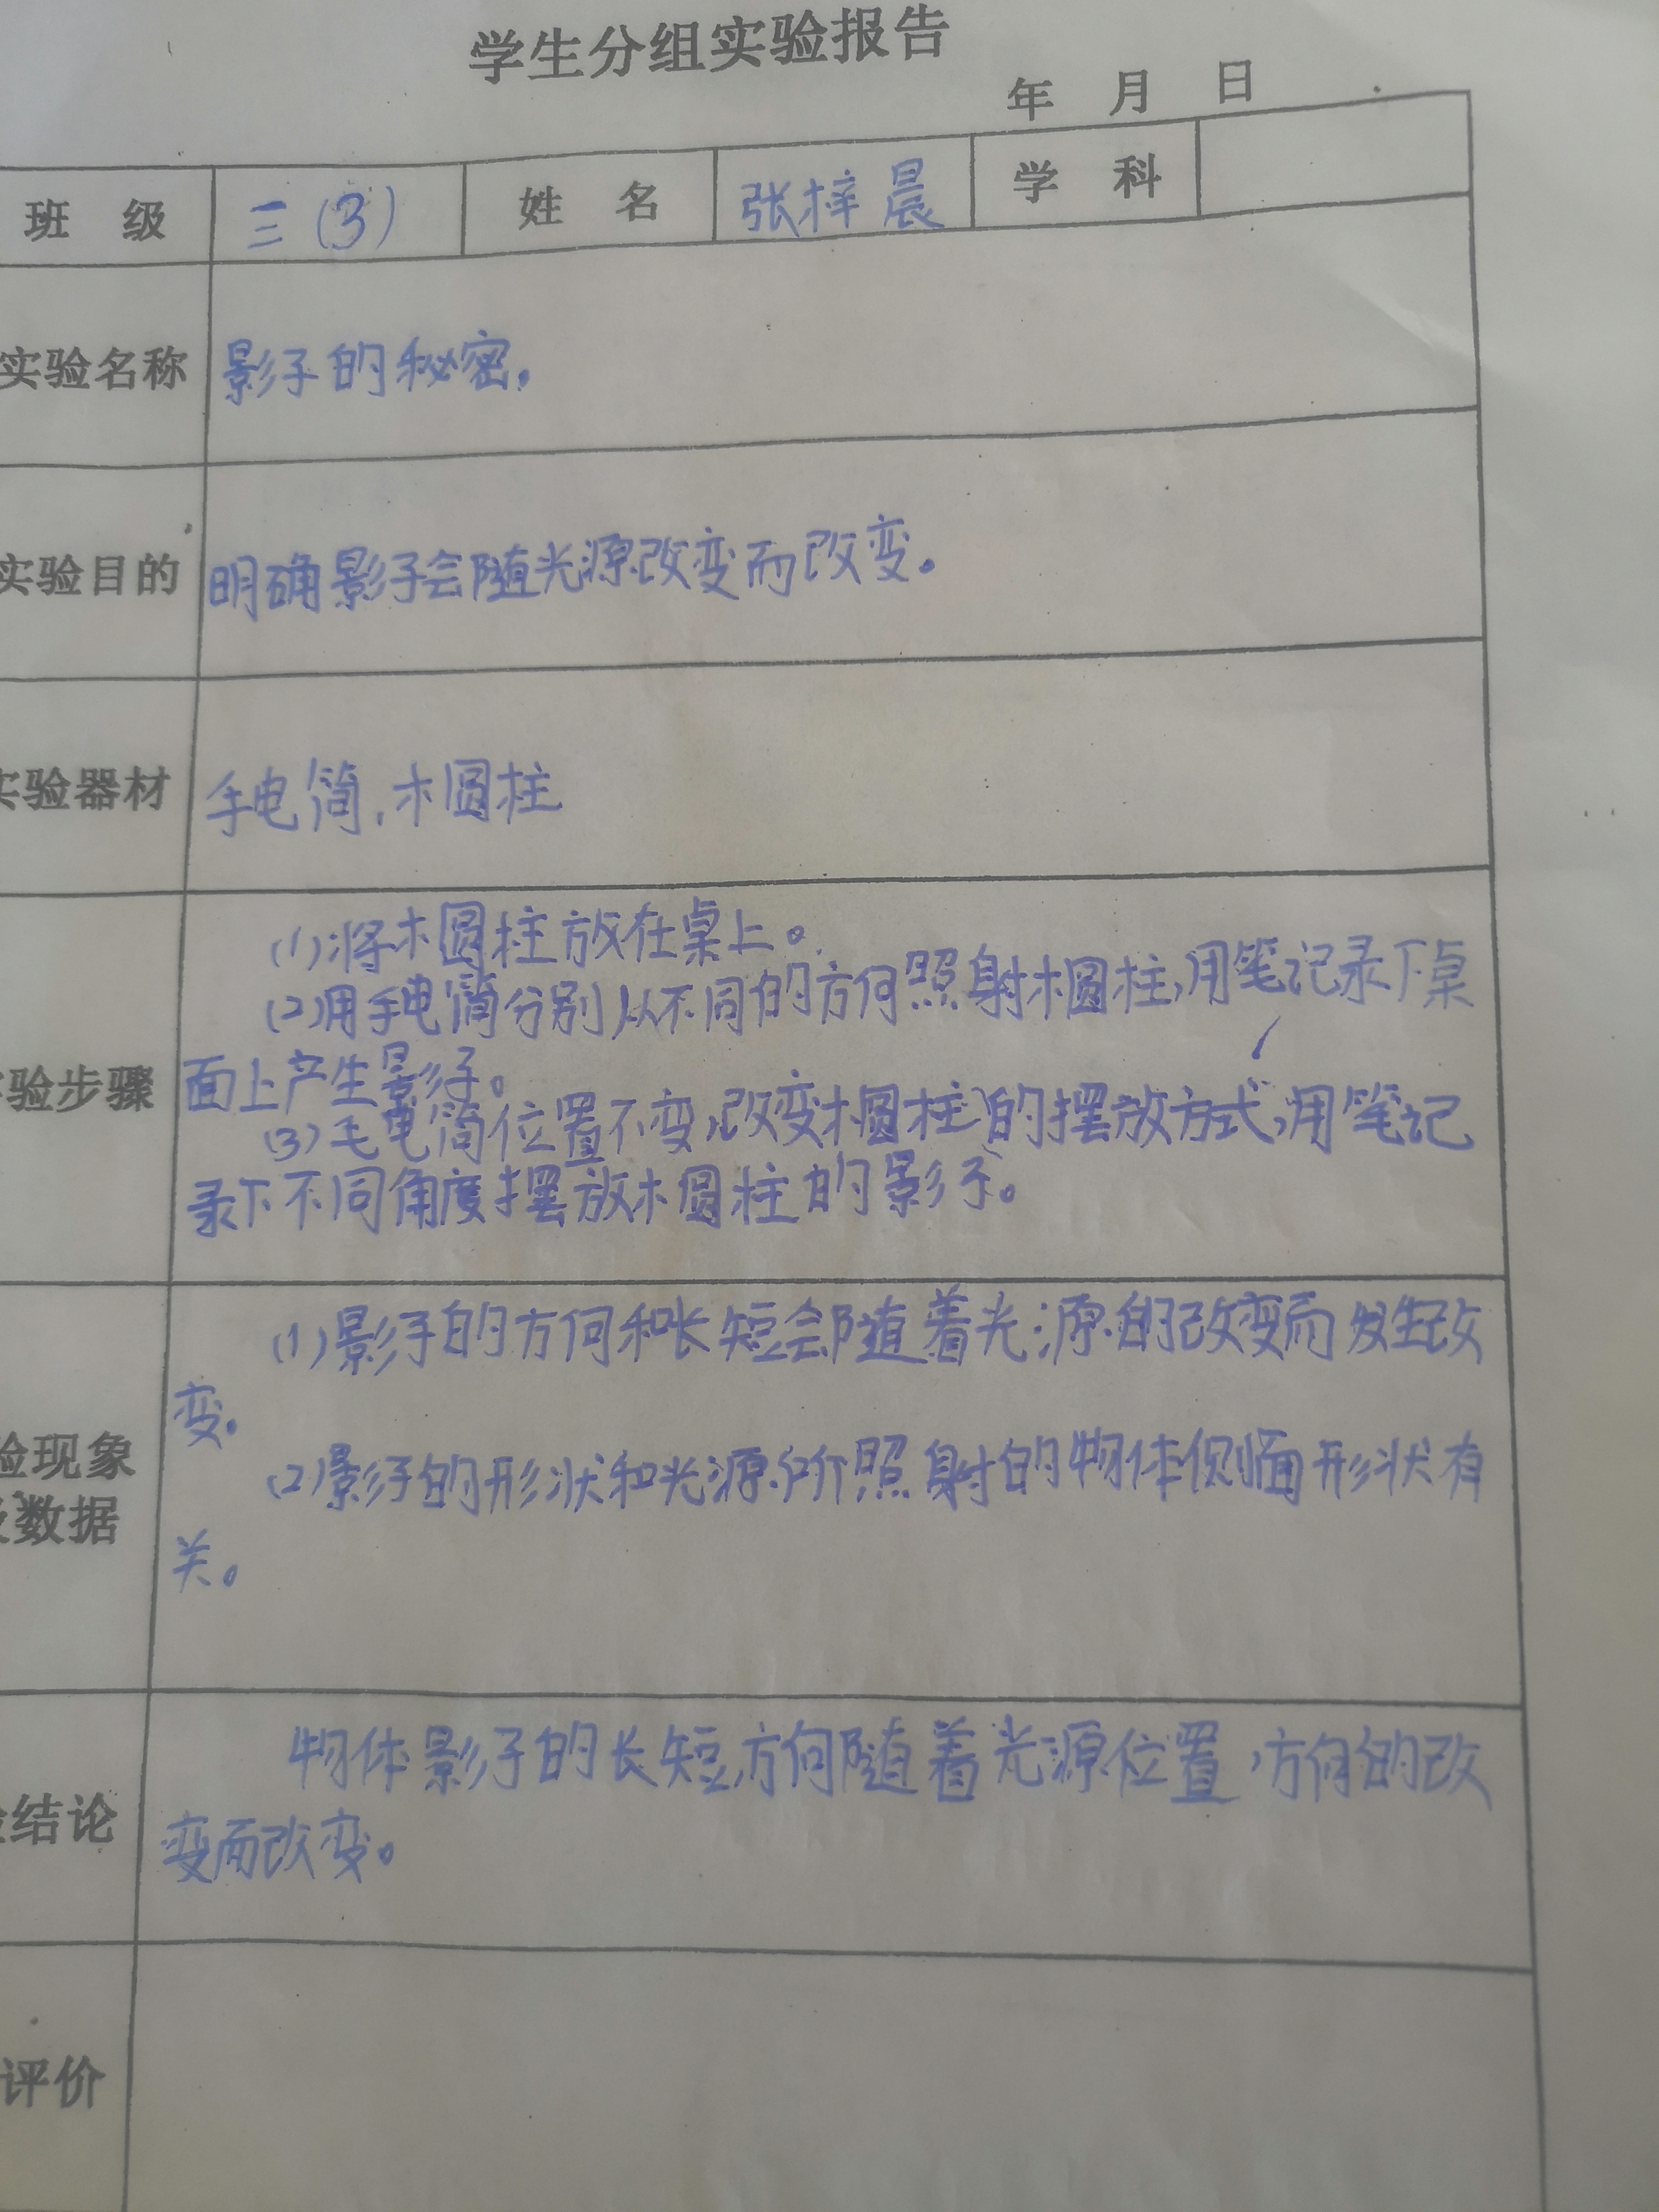 学生分组实验报告
年 月 日
班 级 三(3) 姓 名 张梓晨 学 科
实验名称 影子的秘密。
实验目的 明确影子会随光源改变而改变。
实验器材 手电筒,木圆柱
(1)将木圆柱放在桌上。
(2)用手电筒分别从不同的方向照射木圆柱,用笔记录下桌
验步骤 面上产生影子。
(3)手电筒位置不变,改变木圆柱的摆放方式,用笔记
录下不同角度摆放木圆柱的影子。
(1)影子的方向和长短会随着光源的改变而发生改
变。
验现象 (2)影子的形状和光源所照射的物体侧面形状有
数据 关。
物体影子的长短,方向随着光源位置,方向的改
结论 变而改变。
评价